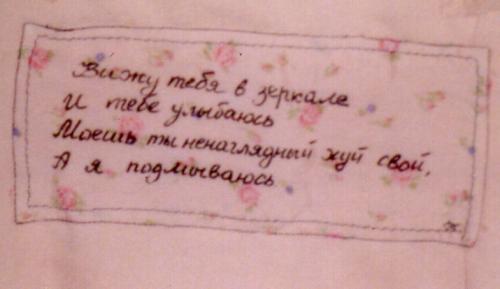 Вижу тебя в зеркале
И тебе улыбаюсь
Моешь ты ненаглядный хуй свой,
А я подмываюсь